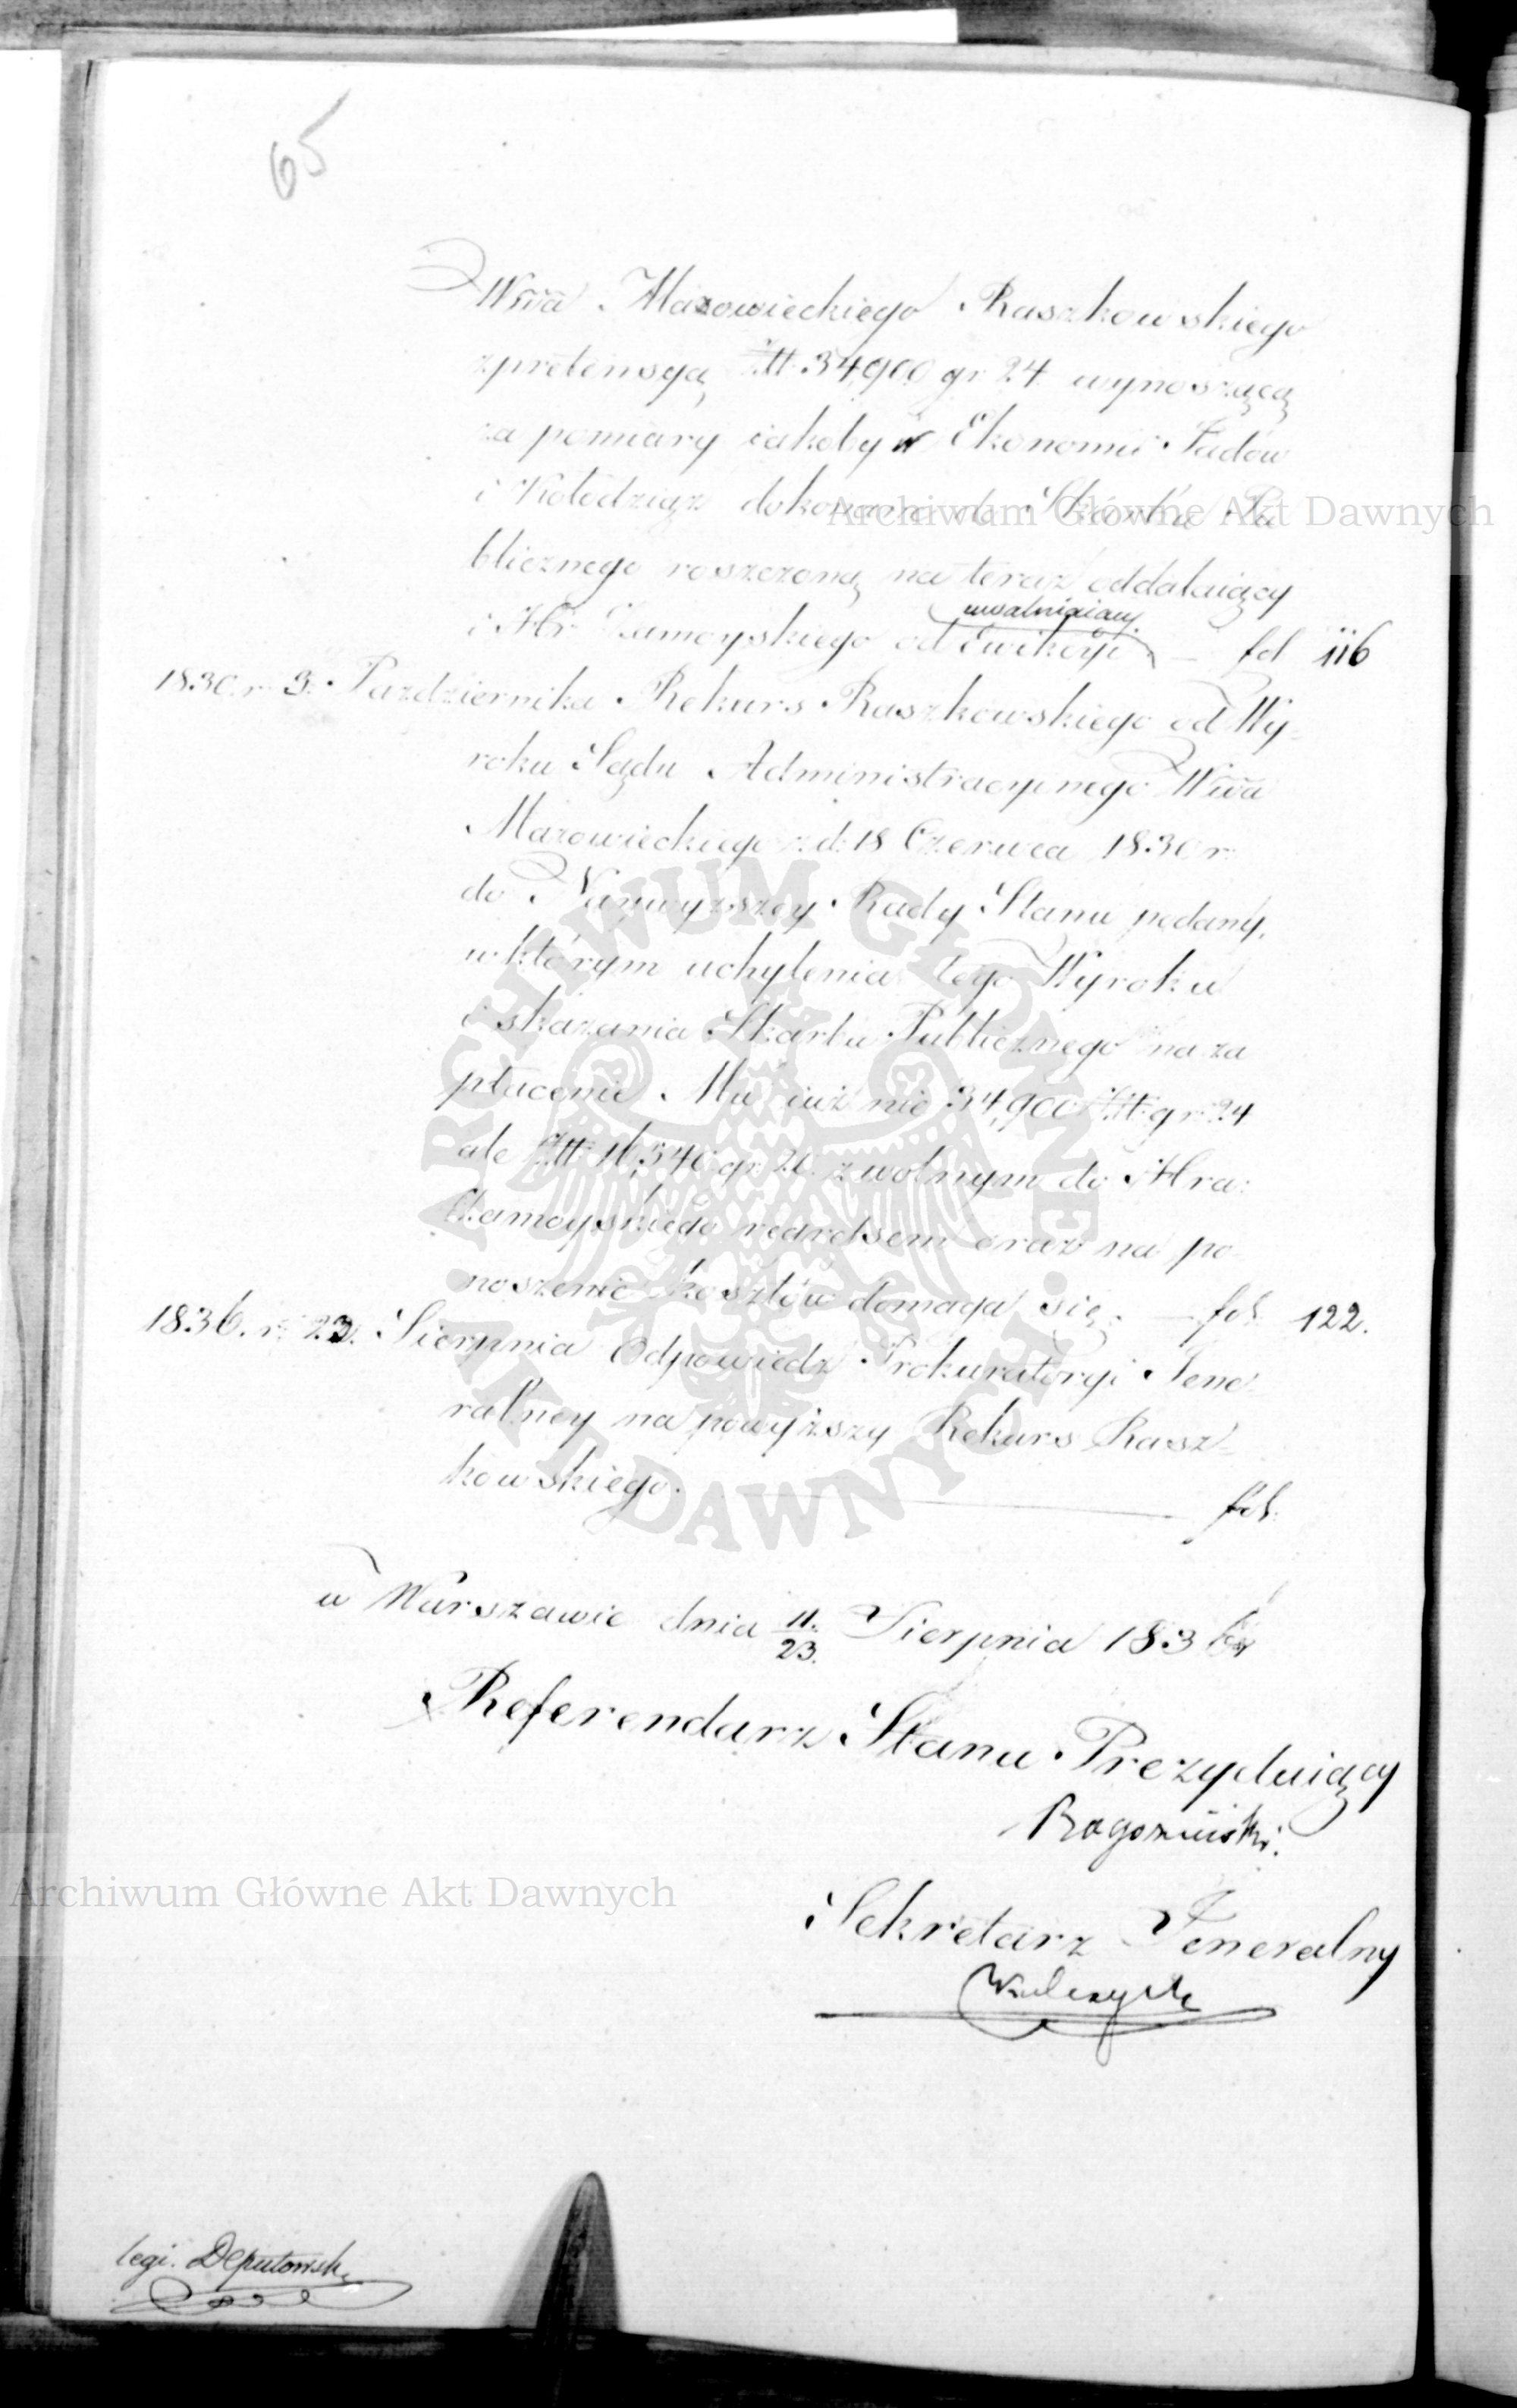 65
Wwa Mazowieckiego Raszkowskiego
z pretensyą Złt 34,900 gr 24 wynoszącą
za pomiary iakoby w Ekonomii Sadów
i Kołodziąż dokonane do Skarbu Pu
blicznego roszczoną na teraz oddalaiący
uwalniaiący
i Hr Zamoyskiego od Ewikcyi — fol 116
1830. r. 3. Pazdziernika Rekurs Raszkowskiego od Wy-
roku Sądu Administracyinego Wwa
Mazowieckiego z d: 18 Czerwca 1830 r:
do Naywyzszey Rady Stanu podany,
w którym uchylenia tego Wyroku
i skazania Skarbu Publicznego na za
płacenie Mu iuż nie 34,900 Złt: gr 24
ale Złt 16,540 gr 26 z wolnym do Hra:
Zamoyskiego regressem oraz na po-
noszenie kosztów domaga się. — fol. 122.
1836. r. 23. Sierpnia Odpowiedz Prokuratoryi Jene-
ralney na powyższy Rekurs Rasz-
kowskiego. — fol.
w Warszawie dnia 11./23. Sierpnia 1836
Referendarz Stanu Prezyduiący
Sekretarz Jeneralny
legi. Deputowski
Archiwum Główne Akt Dawnych
Archiwum Główne Akt Dawnych
ARCHIWUM GŁÓWNE AKT DAWNYCH